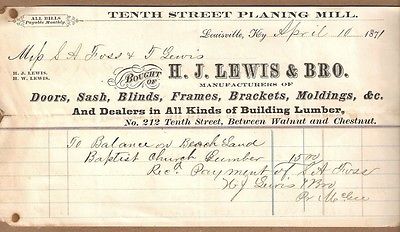 ALL BILLS
Payable Monthly.
TENTH STREET PLANING MILL.
Louisville, Ky April 10 1871
S A Foss & F Lewis
H. J. LEWIS.
H. W. LEWIS.
BOUGHT OF
H. J. LEWIS & BRO.
MANUFACTURERS OF
Doors, Sash, Blinds, Frames, Brackets, Moldings, &c.
And Dealers in All Kinds of Building Lumber,
No. 212 Tenth Street, Between Walnut and Chestnut.
To Balance on Land
Baptist Church Lumber 15.00
Recd Payment of S A Foss
H J Lewis & Bro
Pr McGee